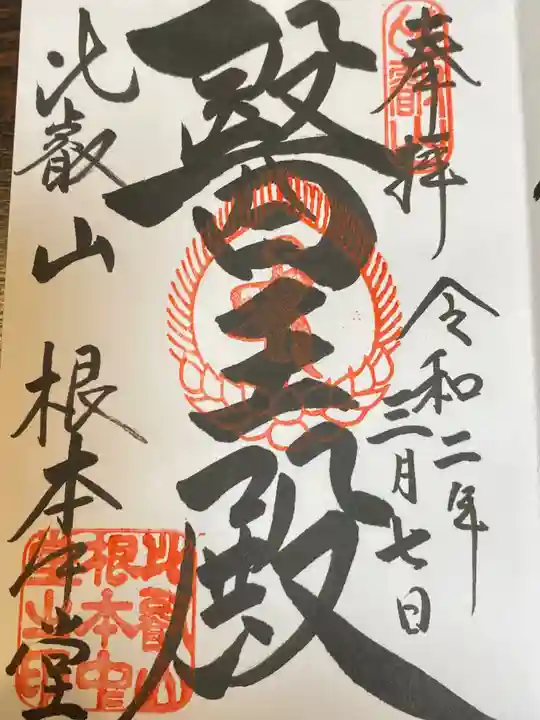 奉拝
令和二年
三月七日
醫王殿
比叡山 根本中堂
比叡山
根本中
堂之印